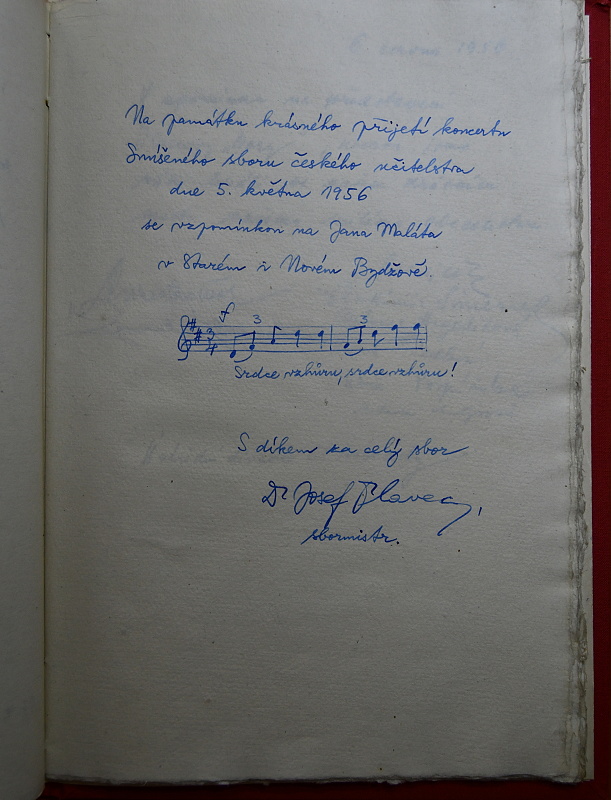 Na památku krásného přijetí koncertu
Smíšeného sboru českého učitelstva
dne 5. května 1956
se vzpomínkou na Jana Maláta
v Starém i Novém Bydžově.
f
3 3
3
4
Srdce vzhůru, srdce vzhůru!
S díkem za celý sbor
Dr Josef Plavec,
sbormistr.